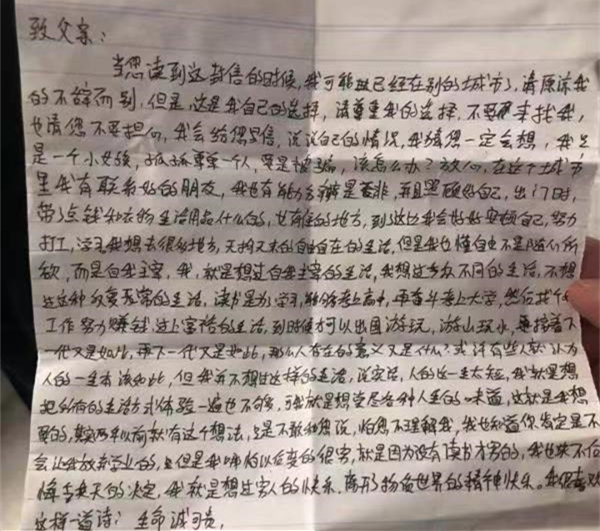 致父亲：
当您读到这封信的时候，我可能已经在别的城市了，请原谅我
的不辞而别，但是，这是我自己的选择，请尊重我的选择，不要来找我，
也请您不要担心，我会给您写信，说说自己的情况，我猜您一定会想，我只
是一个小女孩，孤孤单单一个人，要是被骗，该怎么办？放心，在这个城市
里我有联系好的朋友，我也有能力去辨是否非，并且照顾好自己，出门时，
带了点钱和衣物生活用品什么的，也有住的地方，到了这边我会好好安顿自己，努力
打工，学习我想去很多地方，天南又大的自由自在的生活，但是我也懂自由不是随心所
欲，而是自我主宰，我，就是想过自我主宰的生活，我想过多众不同的生活，不想
过这种 的生活，读书是为了学习，能够考上高中，再奋斗考上大学，然后找个
工作努力赚钱过上富裕的生活，到时候才可以出国游玩，游山玩水，再接着下
一代又是如此，再下一代又是如此，那么人存在的意义又是什么？或许有些人就认为
人的一生本该如此，但我并不想过这样的生活，说实话，人的这一生太短，我就是想
把所有的生活方式体验一遍也不够，可我就是想尝尽各种人生的味道，这就是我想
要的，其实两年以前就有这个想法，只是不敢和您说，怕您不理解我，我也知道你肯定是不
会让我放弃学业的，但是我哪怕以后变的很穷，就是因为没有读书才穷的，我也决不会
悔 今天的决定，我就是想过穷人的快乐，离形物质世界的精神快乐。我很喜欢
这样一首诗：生命诚可贵，